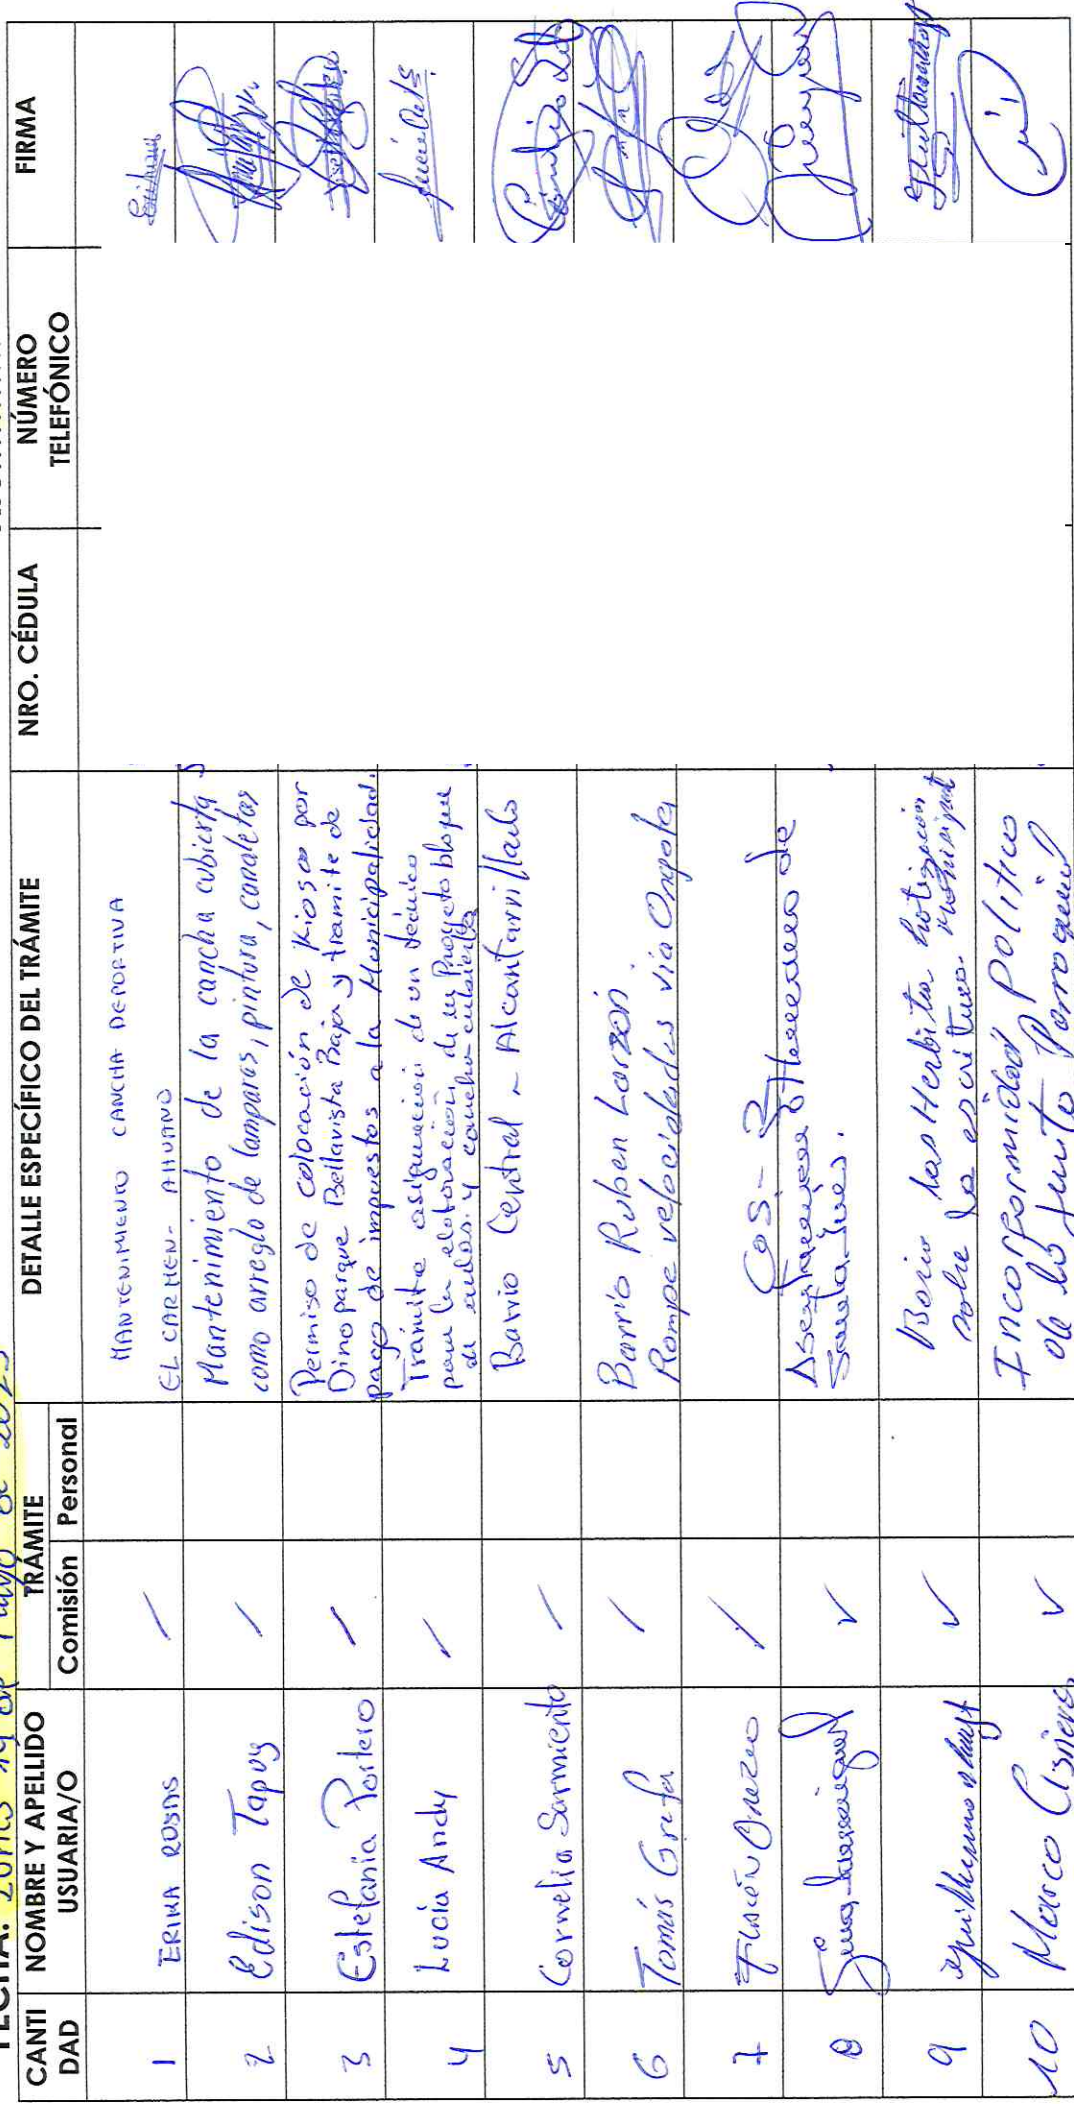 FECHA: Lunes 19 de Mayo de 2025
CANTI DAD
NOMBRE Y APELLIDO USUARIA/O
TRÁMITE
Comisión
Personal
DETALLE ESPECÍFICO DEL TRÁMITE
NRO. CÉDULA
NÚMERO TELEFÓNICO
FIRMA
1 ERIKA ROSAS /
MANTENIMIENTO CANCHA DEPORTIVA
EL CARMEN - AHUANO
2 Edison Tapuy /
Mantenimiento de la cancha cubierta
como arreglo de lamparas, pintura, canaletas
3 Estefania Portero /
Permiso de colocación de Kiosco por
Dino parque Bellavista Baja y tramite de
pago de impuestos a la Municipalidad.
4 Lucia Andy /
Trámite asignación de un técnico
para la elaboración de un Proyecto bloque
de aulas. y cancha cubierta
5 Cornelia Sarmiento /
Barrio Central - Alcantarillado
6 Tomás Grefa /
Barrio Ruben
Rompe velocidades via
7 /
8 ✓
de
9 ✓
Barrio las Herbitas
sobre la escritura.
10 Marco Cisneros ✓
Incorformidad Politico
de la Junta Parroquial